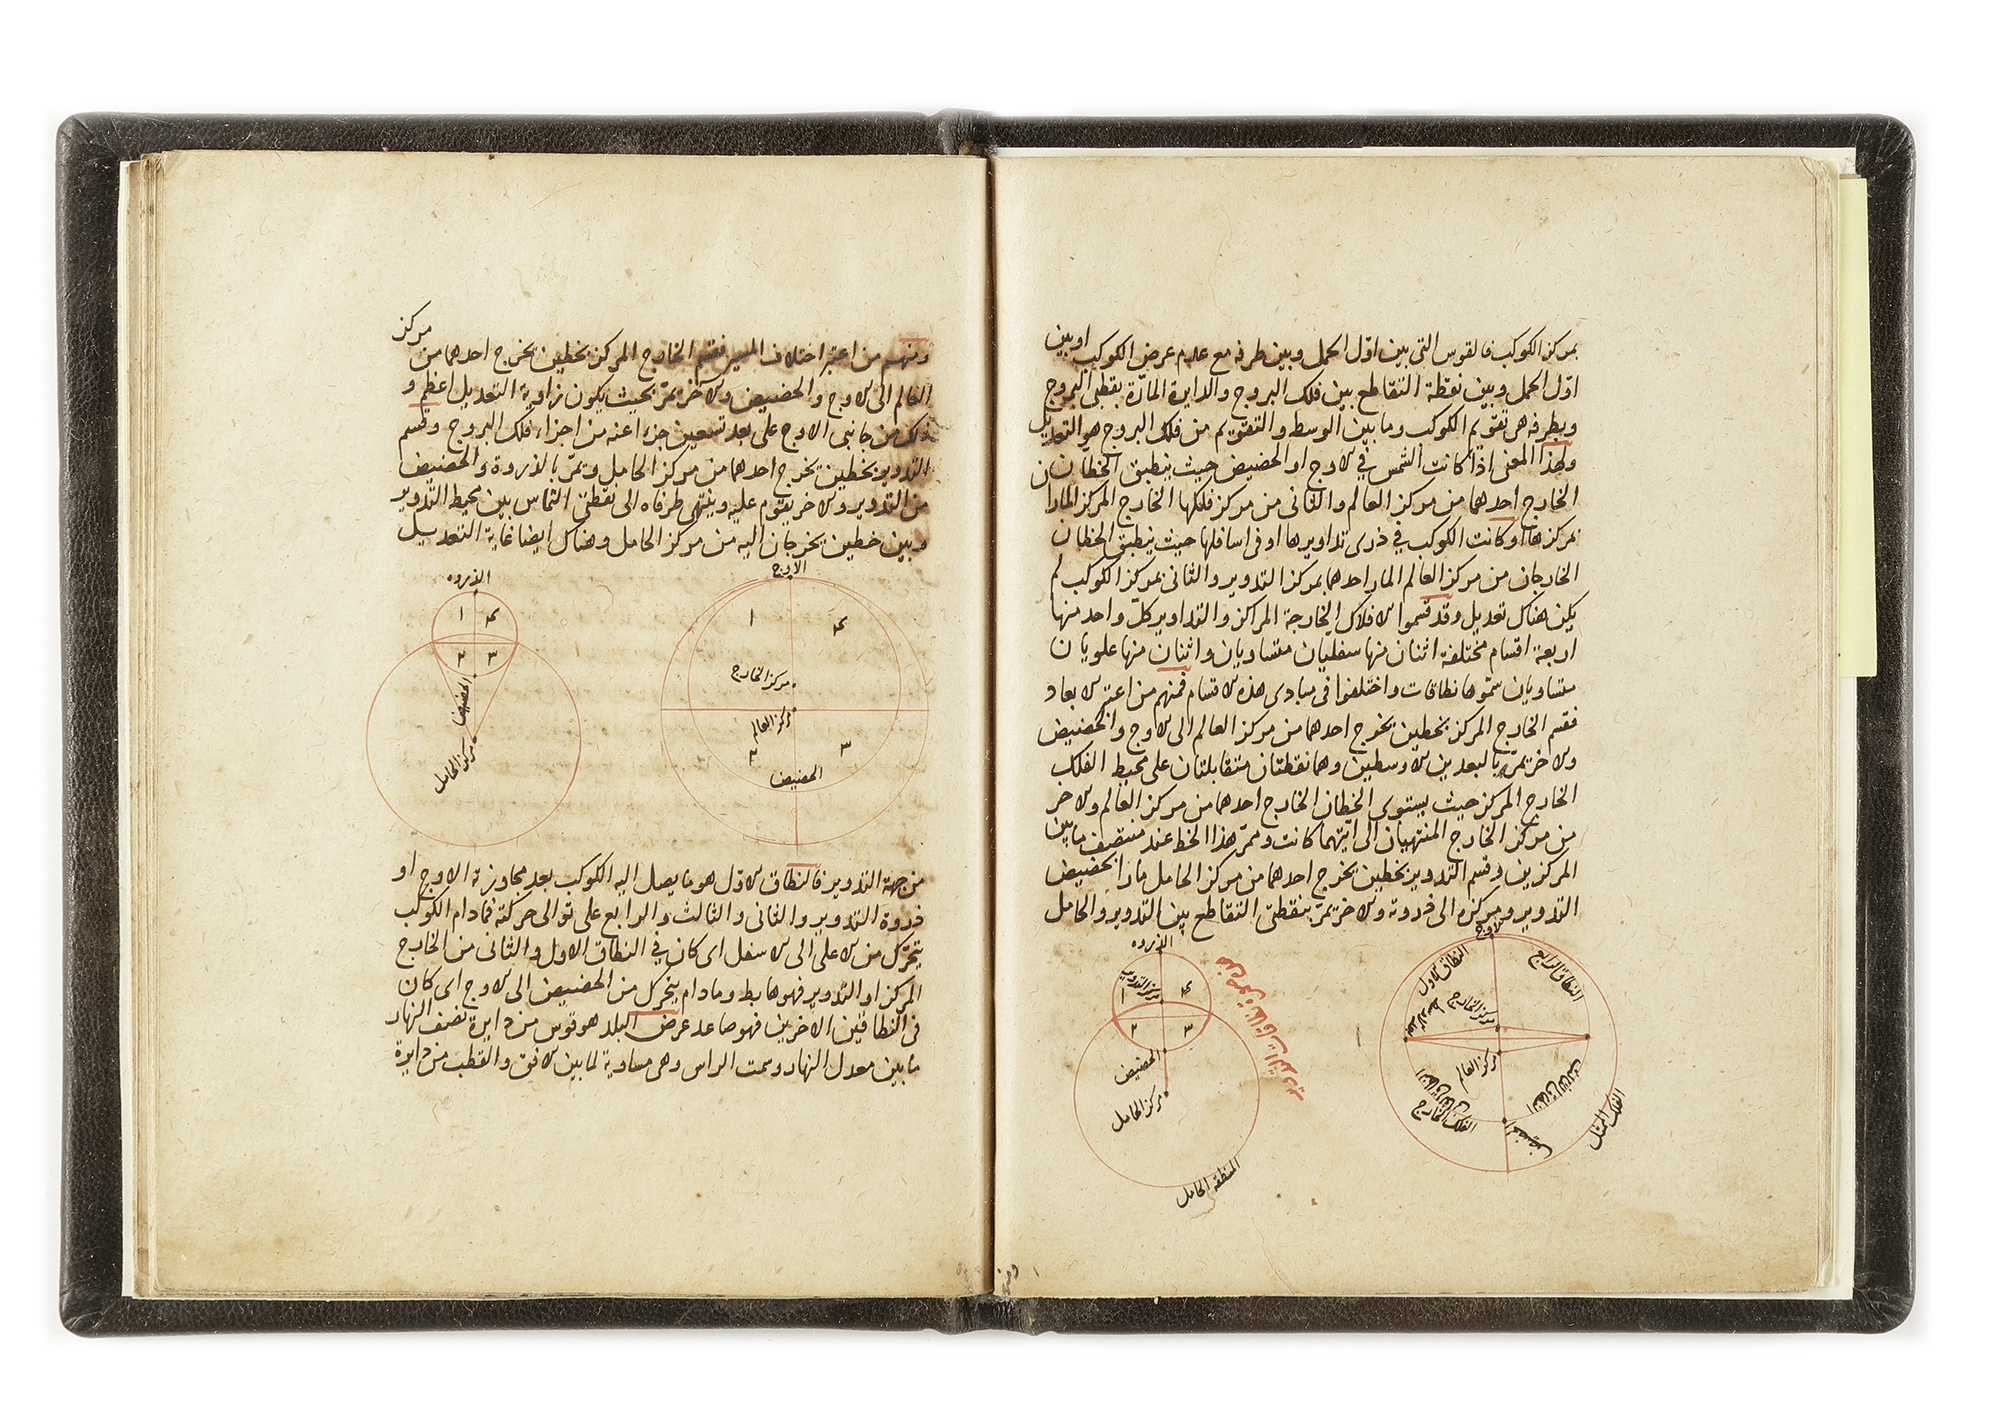 بمركز الكوكب فالقوس التي بين اوّل الحمل وبين طرفه مع عدم عرض الكوكب او بين
اوّل الحمل وبين نقطة التقاطع بين فلك البروج والدايرة المارّة بقطبي البروج
وبطرفه هي تقويم الكوكب وما بين الوسط والتقويم من فلك البروج هو التعديل
ولهذا المعنى اذا كانت الشمس في الاوج او الحضيض حيث ينطبق الخطان
الخارج احدهما من مركز العالم والثاني من مركز فلكها الخارج المركز المارا
بمركزها او كانت الكوكب في ذرى تداويرها او في اسافلها حيث ينطبق الخطان
الخارجان من مركز العالم المار احدهما بمركز التدوير والثاني بمركز الكوكب لم
يكن هناك تعديل وقد قسموا الافلاك الخارجة المراكز والتداوير كلّ واحد منها
اربعة اقسام مختلفة اثنان منها سفليان متساويان واثنان منها علويان
متساويان سمّوها نطاقات واختلفوا في مبادى هذه الاقسام فمنهم من اعتبر الابعاد
فقسم الخارج المركز بخطين يخرج احدهما من مركز العالم الى الاوج والحضيض
والاخر يمرّ بالبعدين الاوسطين وهما نقطتان متقابلتان على محيط الفلك
الخارج المركز حيث يستوى الخطان الخارج احدهما من مركز العالم والاخر
من مركز الخارج المنتهيان الى ايّتهما كانت وممرّ هذا الخط عند منتصف ما بين
المركزين وقسم التدوير بخطين يخرج احدهما من مركز الحامل مارا بحضيض
التدوير ومركزه الى ذروته والاخر يمرّ بنقطتي التقاطع بين التدوير والحامل
الاوج
النطاق الرابع
النطاق الاول
مركز الخارج
مركز العالم
النطاق الثالث
الفلك الخارج
الحضيض
الفلك الممثل
الذروه
مركز التدوير
١ ٤
٢ ٣
الحضيض
مركز الحامل
المنطقه الحامل
مركز
ومنهم من اعتبر اختلاف المسير فقسم الخارج المركز بخطين يخرج احدهما من
العالم الى الاوج والحضيض والآخر يمرّ بحيث يكون زاوية التعديل اعظم و
ذلك من جانبى الاوج على بعد تسعين جزءا عنه من اجزاء فلك البروج وقسم
التدوير بخطين يخرج احدهما من مركز الحامل وتمرّ بالذروة والحضيض
من التدوير والاخر يقوم عليه وينتهى طرفاه الى نقطتى التماس بين محيط التدوير
وبين خطين يخرجان اليه من مركز الحامل وهناك ايضا غاية التعديل
الاوج
١ ٤
مركز الخارج
مركز العالم
٢ ٣
الحضيض
الذروه
١ ٤
٢ ٣
الحضيض
مركز الحامل
من جهة التدوير فالنطاق الاوّل هو ما يصل اليه الكوكب بعد مجاوزته الاوج او
ذروة التدوير والثانى والثالث والرابع على توالى حركته فما دام الكوكب
يتحرّك من الاعلى الى الاسفل اى كان في النطاق الاول والثانى من الخارج
المركز او التدوير فهو هابط وما دام يتحرك من الحضيض الى الاوج اى كان
فى النطاقين الاخرين فهو صاعد عرض البلد هو قوس من دايرة نصف النهار
ما بين معدل النهار وسمت الراس وهى مساوية لما بين الافق والقطب من دايرة